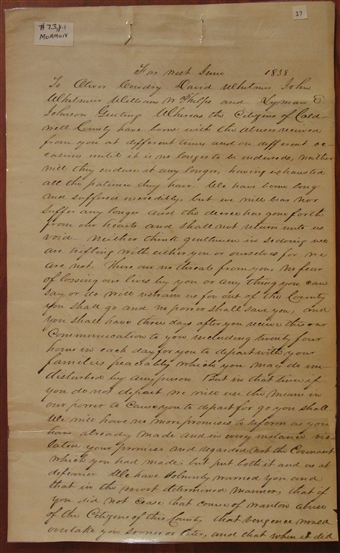 #7381
MORMON
27
Far West June 1838
To Oliver Cowdry David Whitmer John
Whitmer William W Phelps and Lyman E
Johnson Greeting Whereas the Citizens of Cald-
well County have borne with the abuse received
from you at different times and on different oc-
casions until it is no longer to be endured, neither
will they endure it any longer, having exhausted
all the patience they have. We have borne long
and suffered incredibly, but we will bear nor
suffer any longer and the decree has gone forth
from our hearts and shall not return unto us
void. Neither think gentlemen in so saying we
are trifling with either you or ourselves for we
are not. There are no threats from you, no fear
of loosing our lives by you or any thing you can
say or do will restrain us for out of the County
you shall go and no power shall save you, and
you shall have three days after you receive this our
Communication to you including twenty four
hours in each day for you to depart with your
families peacably which you may do un-
disturbed by any person But in that time if
you do not depart we will use the means in
our power to cause you to depart for go you shall
We will have no more promises to reform as you
have already made and in every instance vio-
lated your promises and regarded not the Covenant
which you had made but put both it and us at
defiance We have solemnly warned you and
that in the most determined manner, that if
you did not cease that course of wanton abuse
of the Citizens of this County that vengence would
overtake you sooner or later, and that when it did